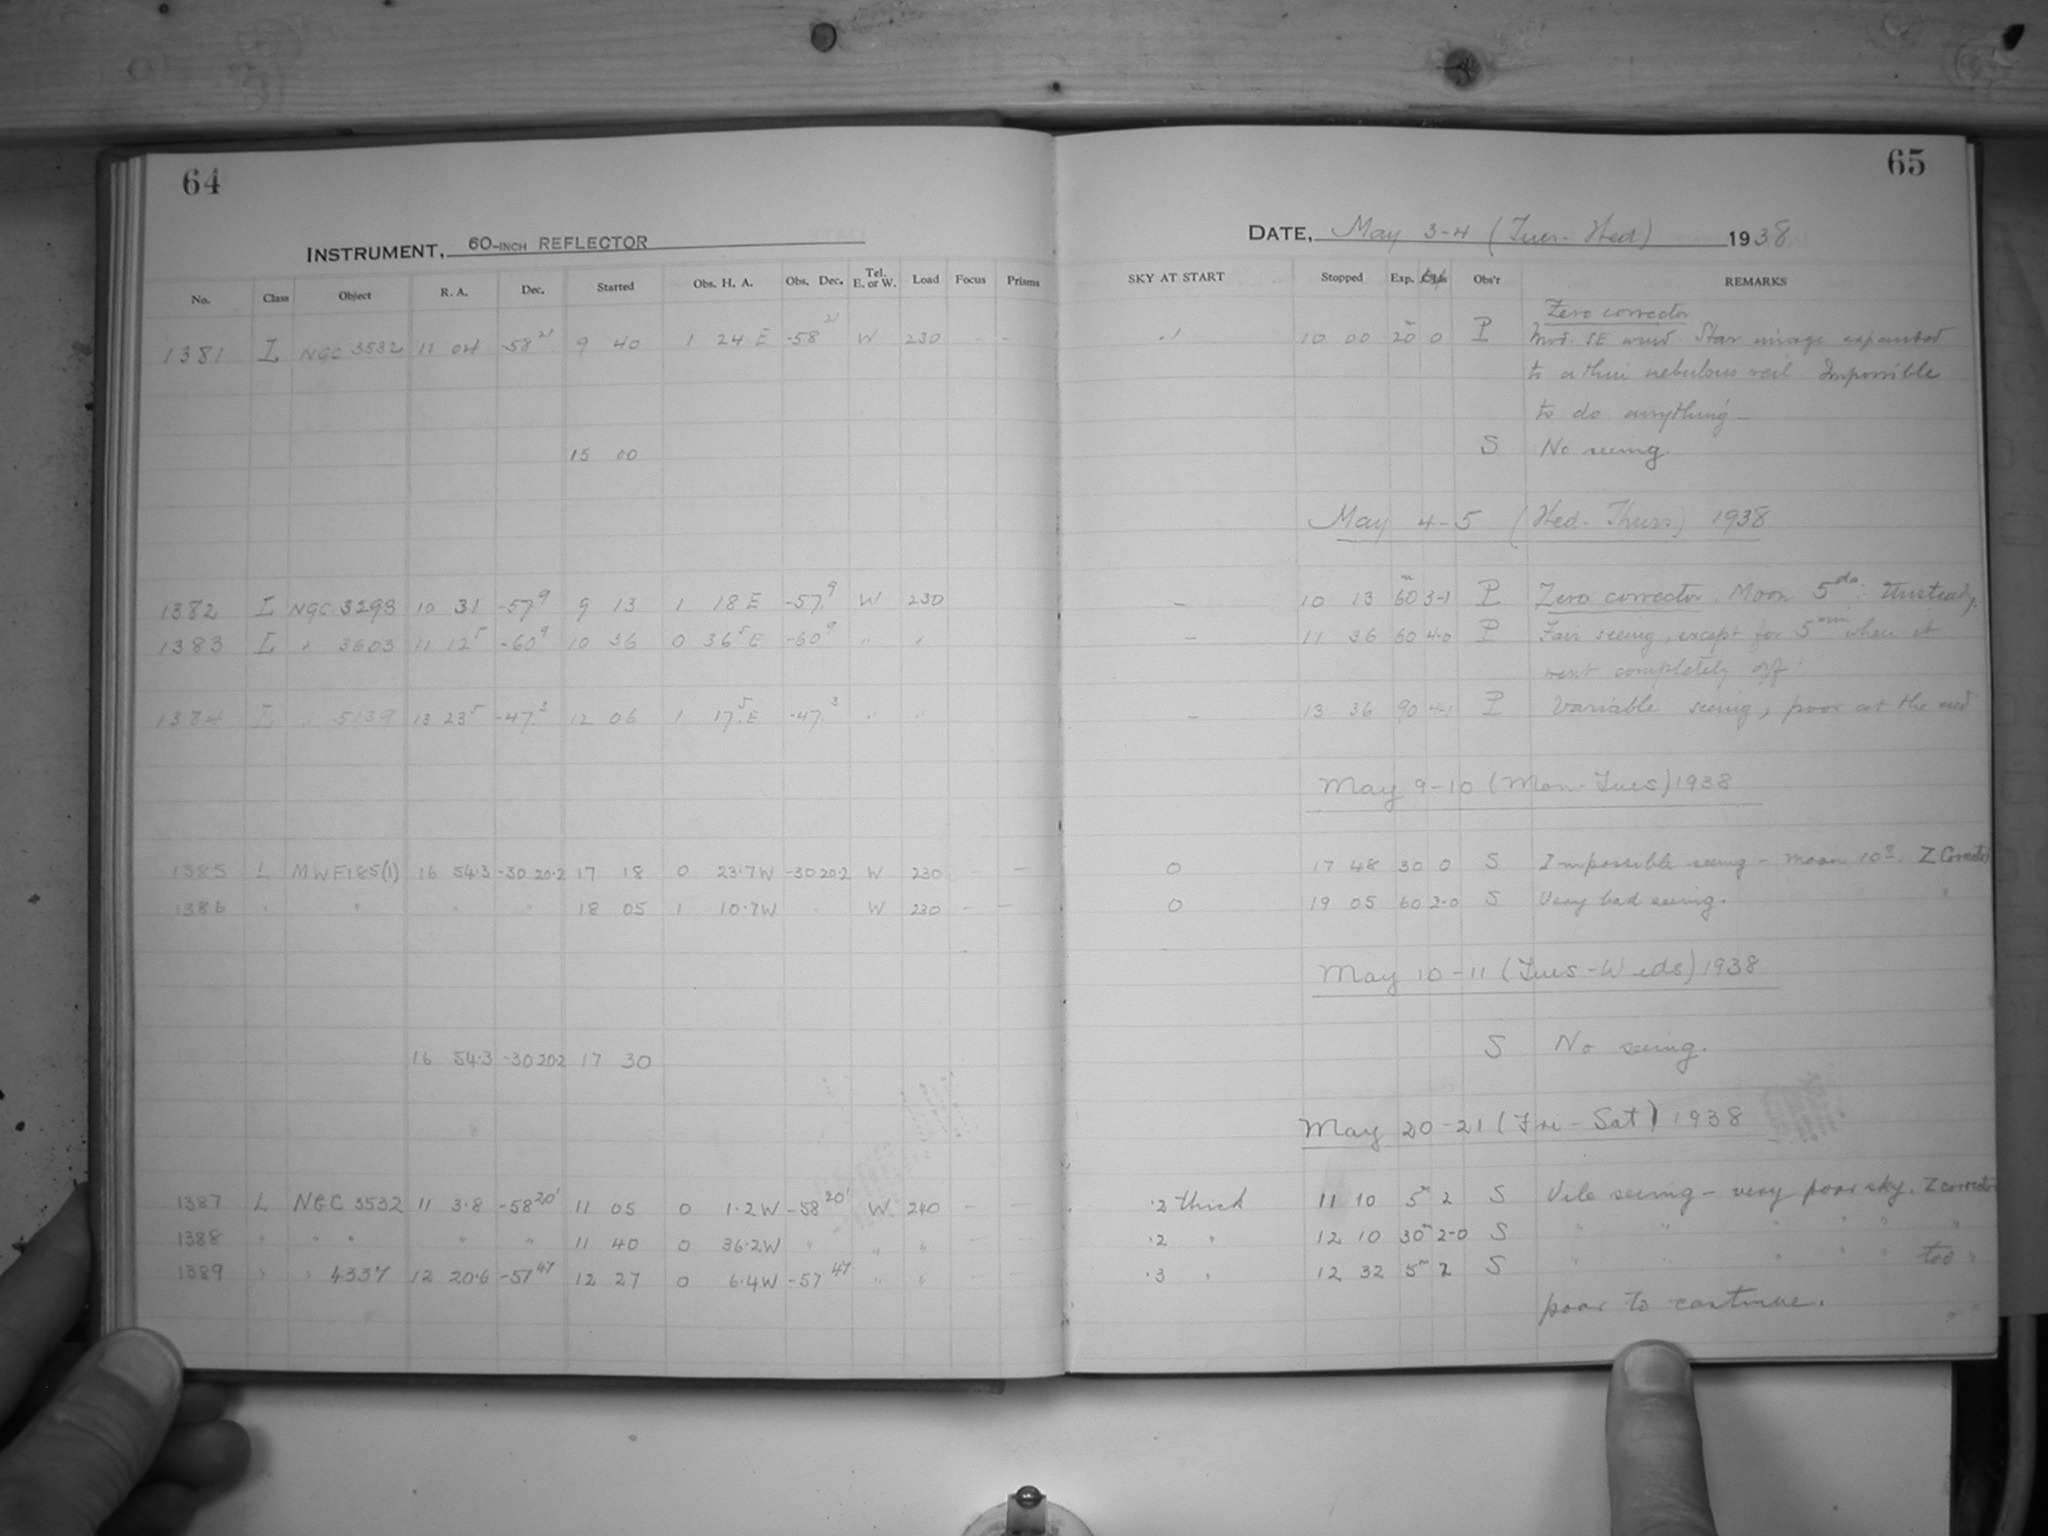 64
INSTRUMENT, 60-INCH REFLECTOR
No. Class Object R. A. Dec. Started Obs. H. A. Obs. Dec. Tel. E. or W. Load Focus Prisms
1381 I NGC 3532 11 04 -58 21 9 40 1 24 E -58 21 W 230 - -
15 00
1382 I NGC 3293 10 31 -57 9 9 13 1 18 E -57 9 W 230
1383 I " 3603 11 12 5 -60 9 10 36 0 36 5 E -60 9 " "
1384 I " 5139 13 23 5 -47 3 12 06 1 17 5 E -47 3 " "
1385 L MWF185(1) 16 54.3 -30 20.2 17 18 0 23.7W -30 20.2 W 230 - -
1386 " " " " 18 05 1 10.7W " W 230 - -
16 54.3 -30 20.2 17 30
1387 L NGC 3532 11 3.8 -58 20' 11 05 0 1.2W -58 20' W 240 - -
1388 " " " " " 11 40 0 36.2W " " " - -
1389 " " 4337 12 20.6 -57 47 12 27 0 6.4W -57 47 " " - -
65
DATE, May 3-4 (Tues-Wed) 1938
SKY AT START Stopped Exp. Obs'r REMARKS
Zero corrector
.1 10 00 20 m 0 P Mod. SE wind. Star image expanded
to a thin nebulous veil. Impossible
to do anything-
S No seeing.
May 4-5 (Wed-Thurs) 1938
- 10 13 60 m 3-1 P Zero corrector. Moon 5 da. Unsteady.
- 11 36 60 4-0 P Fair seeing, except for 5 min when it
went completely off.
- 13 36 90 4-1 P Variable seeing, poor at the end
May 9-10 (Mon-Tues) 1938
0 17 48 30 0 S Impossible seeing - moon 10 d. Z Corrector
0 19 05 60 2-0 S Very bad seeing. "
May 10-11 (Tues-Weds) 1938
S No seeing.
May 20-21 (Fri-Sat) 1938
.2 thick 11 10 5 m 2 S Vile seeing - very poor sky. Z corrector
.2 " 12 10 30 m 2-0 S " " " " " "
.3 " 12 32 5 m 2 S " " " " " too "
poor to continue.